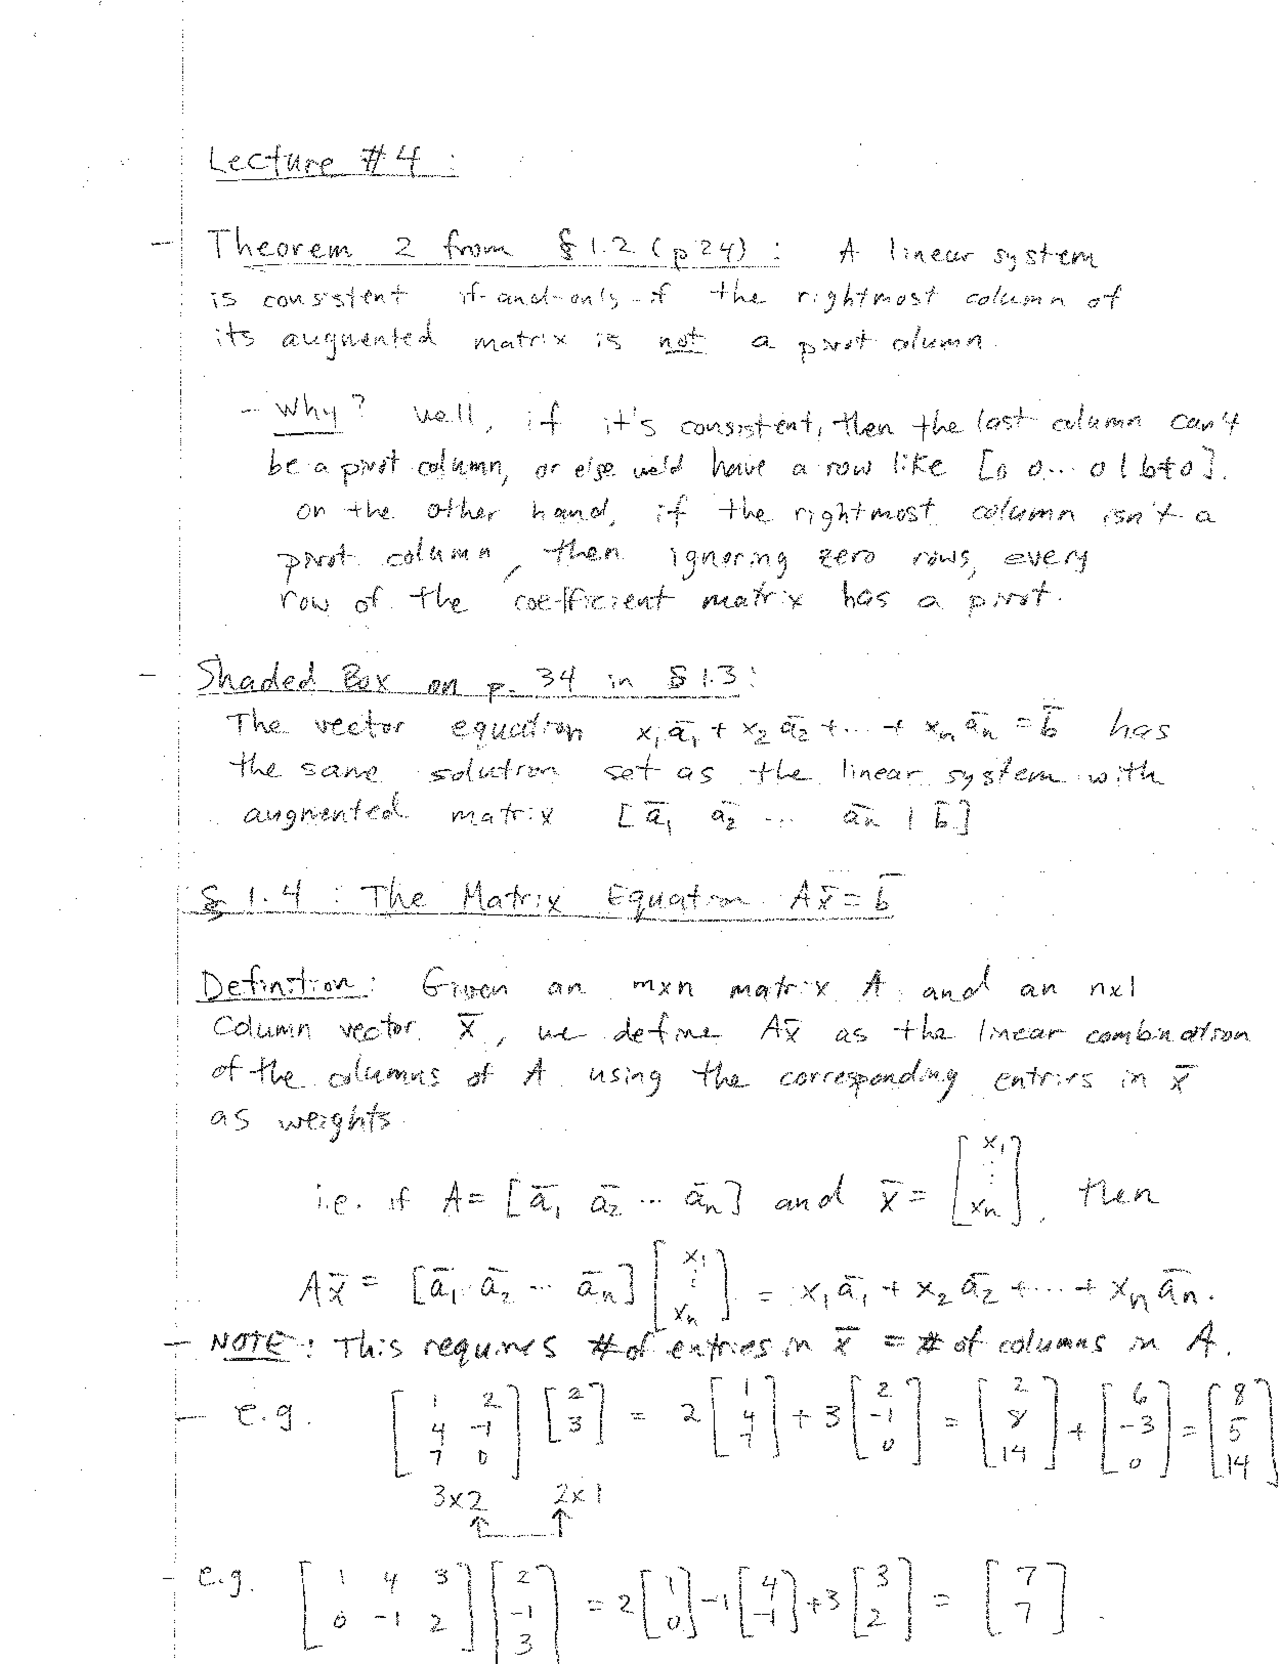 Lecture #4:
— Theorem 2 from §1.2 (p 24): A linear system
is consistent if-and-only-if the rightmost column of
its augmented matrix is not a pivot column.
– Why? Well, if it's consistent, then the last column can't
be a pivot column, or else we'd have a row like [0 0... 0 | b≠0].
On the other hand, if the rightmost column isn't a
pivot column, then ignoring zero rows, every
row of the coefficient matrix has a pivot.
— Shaded Box on p. 34 in §1.3:
The vector equation x₁a̅₁ + x₂a̅₂ + ... + xₙa̅ₙ = b̅ has
the same solution set as the linear system with
augmented matrix [a̅₁ a̅₂ ... a̅ₙ | b̅]
§1.4: The Matrix Equation Ax̅ = b̅
Definition: Given an mxn matrix A and an nx1
Column vector x̅, we define Ax̅ as the linear combination
of the columns of A using the corresponding entries in x̅
as weights.
i.e. if A = [a̅₁ a̅₂ ... a̅ₙ] and x̅ = [x₁ ⋮ xₙ], then
Ax̅ = [a̅₁ a̅₂ ... a̅ₙ] [x₁ ⋮ xₙ] = x₁a̅₁ + x₂a̅₂ + ... + xₙa̅ₙ.
— NOTE: This requires # of entries in x̅ = # of columns in A.
— e.g. [1 2; 4 -1; 7 0] [2; 3] = 2[1; 4; 7] + 3[2; -1; 0] = [2; 8; 14] + [6; -3; 0] = [8; 5; 14]
3x2 2x1
– e.g. [1 4 3; 0 -1 2] [2; -1; 3] = 2[1; 0] -1[4; -1] +3[3; 2] = [7; 7].